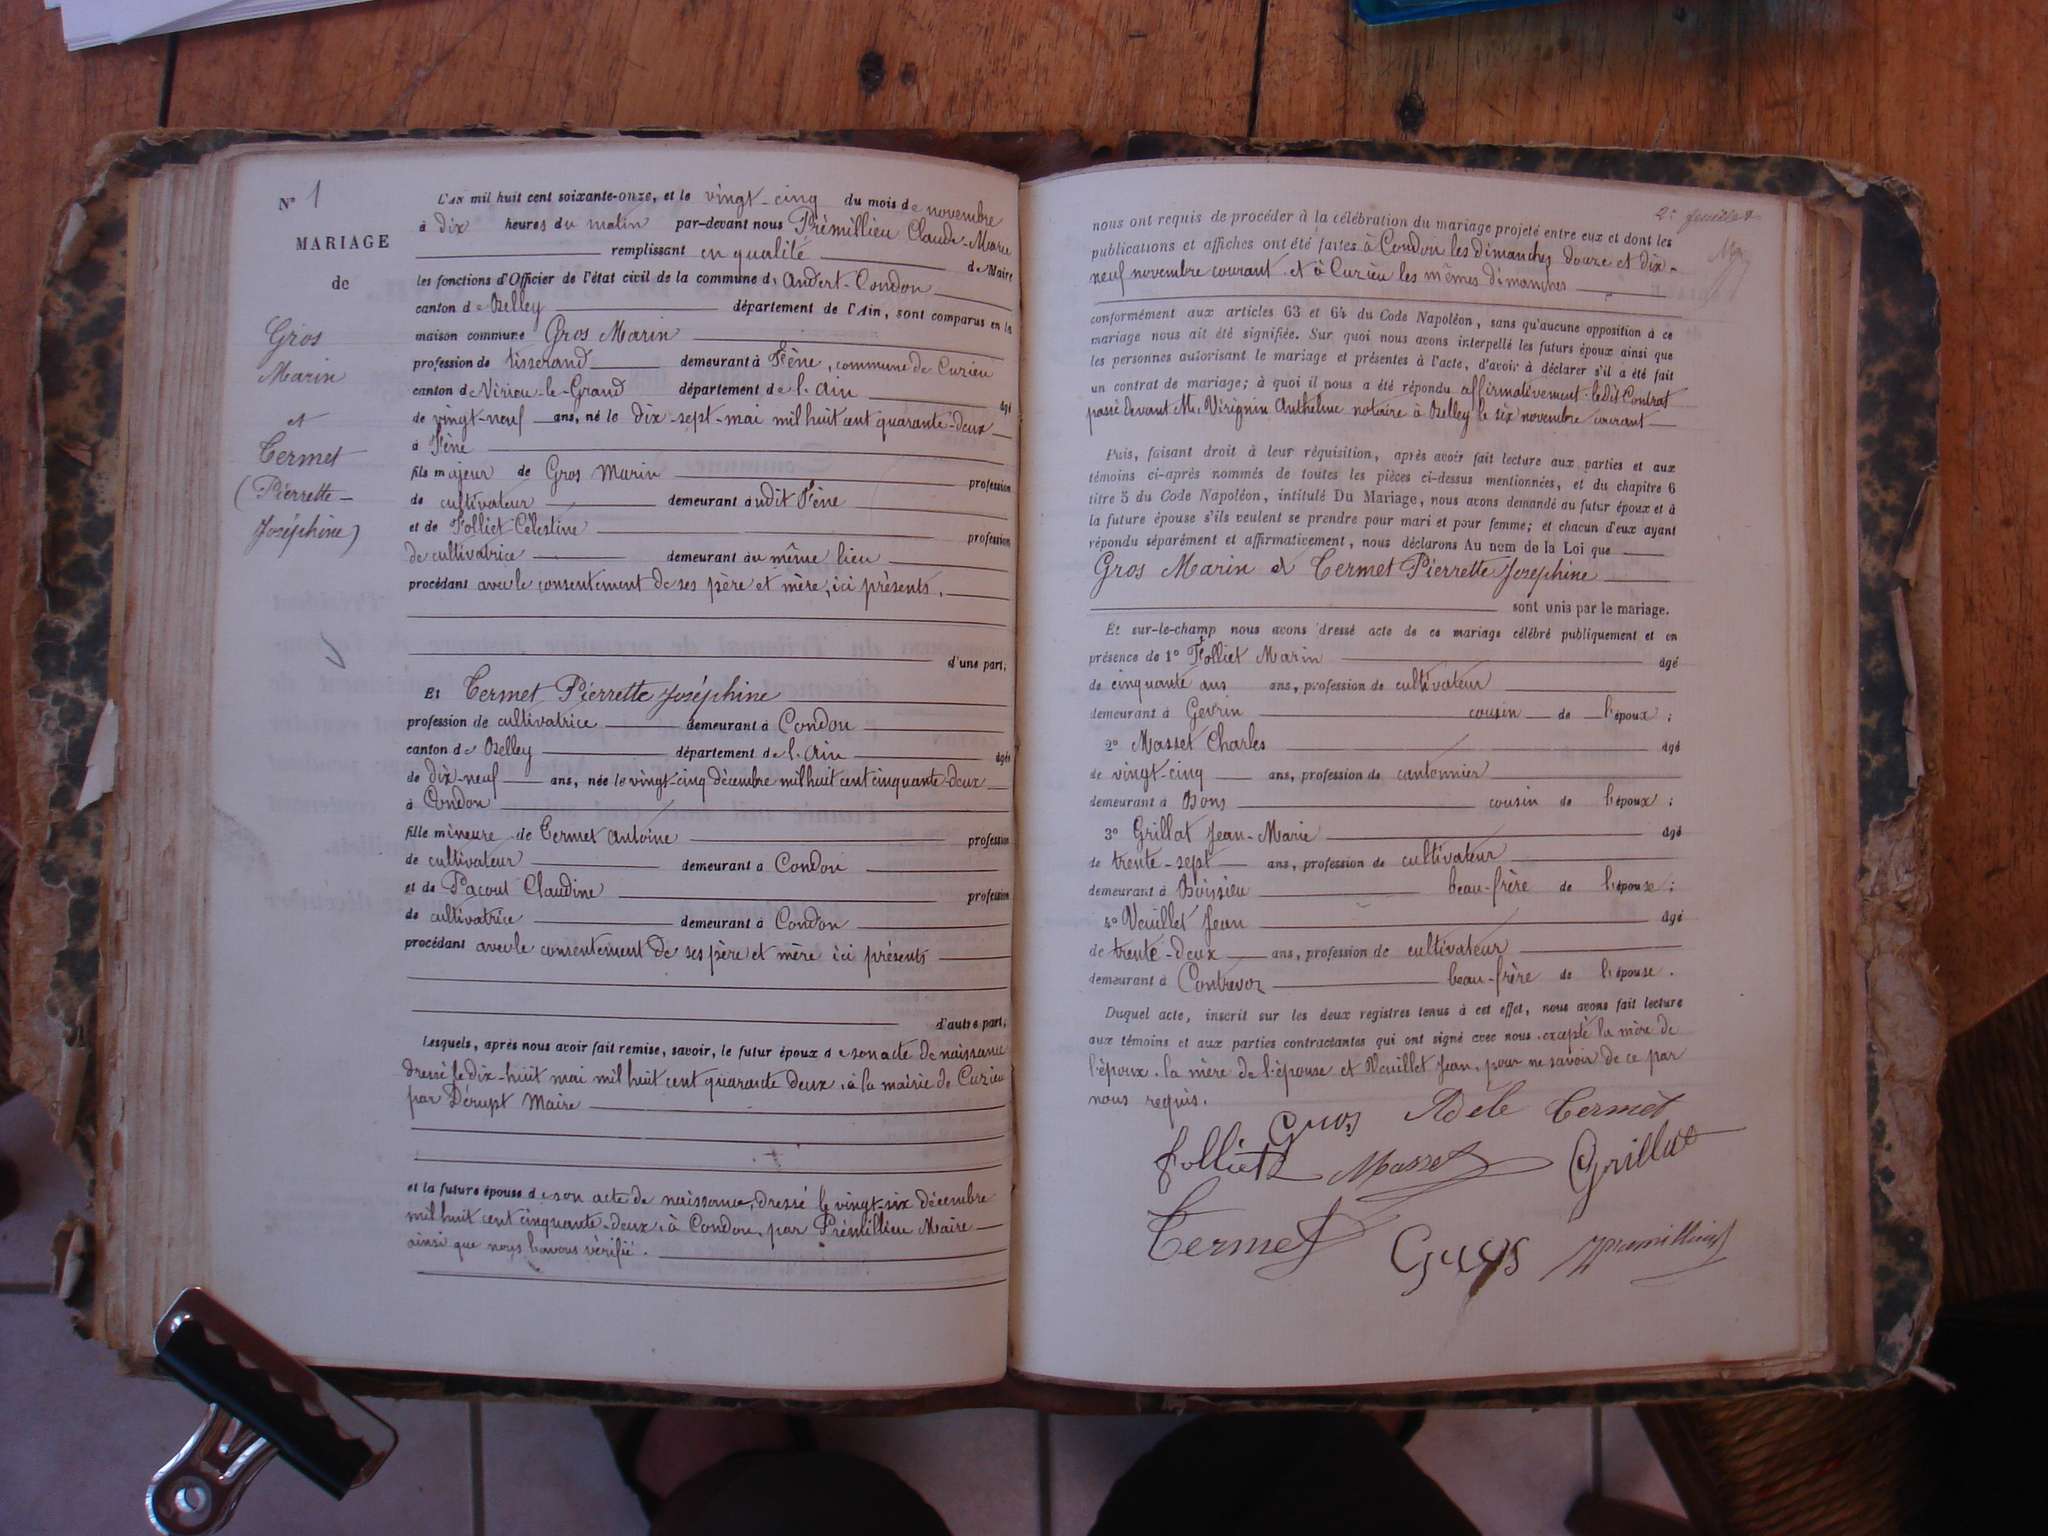 N° 1
MARIAGE
de
Gros
Marin
et
Termet
(Pierrette-
Joséphine)
L'an mil huit cent soixante-onze, et le vingt-cinq du mois de novembre
à dix heures du matin par-devant nous Prémillieu Claude-Marie
remplissant en qualité de Maire
les fonctions d'Officier de l'état civil de la commune d'Andert-Condon
canton de Belley département de l'Ain, sont comparus en la
maison commune Gros Marin
profession de tisserand demeurant à Fène, commune de Curieu
canton de Virieu-le-Grand département de l'Ain âgé
de vingt-neuf ans, né le dix-sept-mai mil huit cent quarante-deux
à Fène
fils majeur de Gros Marin profession
de cultivateur demeurant audit Fène
et de Folliet Célestine profession
de cultivatrice demeurant au même lieu
procédant avec le consentement de ses père et mère, ici présents.
d'une part,
Et Termet Pierrette Joséphine
profession de cultivatrice demeurant à Condon
canton de Belley département de l'Ain âgée
de dix-neuf ans, née le vingt-cinq décembre mil huit cent cinquante-deux
à Condon
fille mineure de Termet Antoine profession
de cultivateur demeurant à Condon
et de Pacout Claudine profession
de cultivatrice demeurant à Condon
procédant avec le consentement de ses père et mère ici présents
d'autre part,
Lesquels, après nous avoir fait remise, savoir, le futur époux de son acte de naissance
dressé le dix-huit mai mil huit cent quarante deux, à la mairie de Curieu
par Dérupt Maire
et la future épouse de son acte de naissance, dressé le vingt-six décembre
mil huit cent cinquante-deux, à Condon, par Prémillieu Maire
ainsi que nous l'avons vérifié.
2e feuillet
nous ont requis de procéder à la célébration du mariage projeté entre eux et dont les
publications et affiches ont été faites à Condon les dimanches douze et dix-
neuf novembre courant et à Curieu les mêmes dimanches
conformément aux articles 63 et 64 du Code Napoléon, sans qu'aucune opposition à ce
mariage nous ait été signifiée. Sur quoi nous avons interpellé les futurs époux ainsi que
les personnes autorisant le mariage et présentes à l'acte, d'avoir à déclarer s'il a été fait
un contrat de mariage; à quoi il nous a été répondu affirmativement. ledit Contrat
passé devant Me Virignin Anthelme notaire à Belley le six novembre courant
Puis, faisant droit à leur réquisition, après avoir fait lecture aux parties et aux
témoins ci-après nommés de toutes les pièces ci-dessus mentionnées, et du chapitre 6
titre 5 du Code Napoléon, intitulé Du Mariage, nous avons demandé au futur époux et à
la future épouse s'ils veulent se prendre pour mari et pour femme; et chacun d'eux ayant
répondu séparément et affirmativement, nous déclarons Au nom de la Loi que
Gros Marin et Termet Pierrette Joséphine
sont unis par le mariage.
Et sur-le-champ nous avons dressé acte de ce mariage célébré publiquement et en
présence de 1° Folliet Marin âgé
de cinquante ans ans, profession de cultivateur
demeurant à Gevrin cousin de l'époux;
2° Masset Charles âgé
de vingt-cinq ans, profession de cantonnier
demeurant à Bons cousin de l'époux;
3° Grillat Jean-Marie âgé
de trente-sept ans, profession de cultivateur
demeurant à Boissieu beau-frère de l'épouse;
4° Veuillet Jean âgé
de trente-deux ans, profession de cultivateur
demeurant à Contrevoz beau-frère de l'épouse.
Duquel acte, inscrit sur les deux registres tenus à cet effet, nous avons fait lecture
aux témoins et aux parties contractantes qui ont signé avec nous excepté la mère de
l'époux, la mère de l'épouse et Veuillet Jean, pour ne savoir de ce par
nous requis.
Gros Adele Termet
folliet Masset Grillat
Termet Gros Premillieu